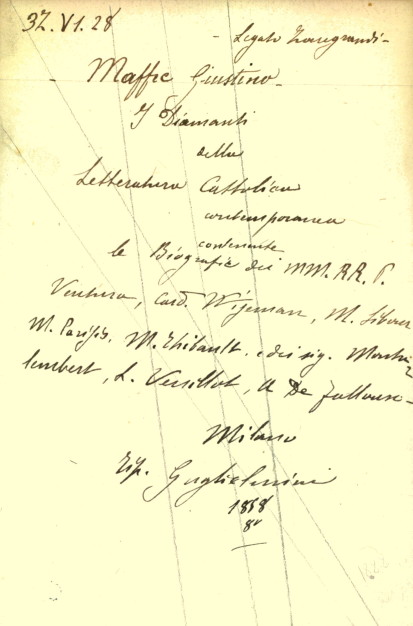 37.VI.28
- Legato Zonegrandi -
- Maffre Giustino -
I Diamanti
della
Letteratura Cattolica
contemporanea
contenente
le Biografie dei MM. RR. P.
Ventura, Card. Wiseman, M. Sibour
M. Parisis, M. Thibault, e dei sig. Monta
lembert, L. Veuillot, A De Falloux -
Milano
Tip. Guglielmini
1858
8º